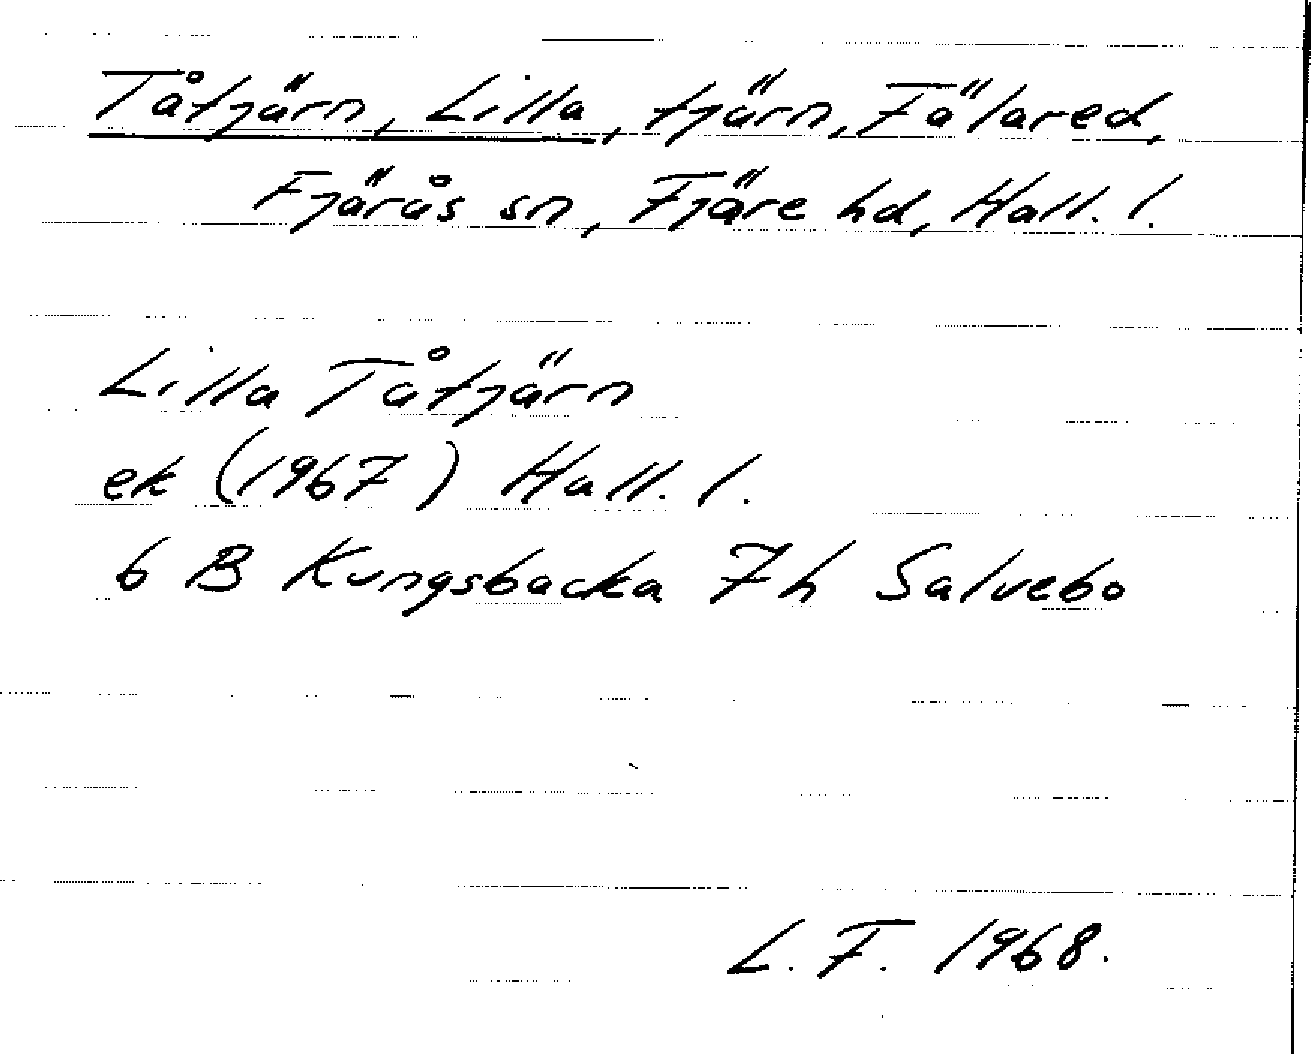 Tåtjärn, Lilla, tjärn, Fälared,
Fjärås sn, Fjäre hd, Hall. l.
Lilla Tåtjärn
ek (1967) Hall. l.
6 B Kungsbacka 7h Salvebo
L. F. 1968.